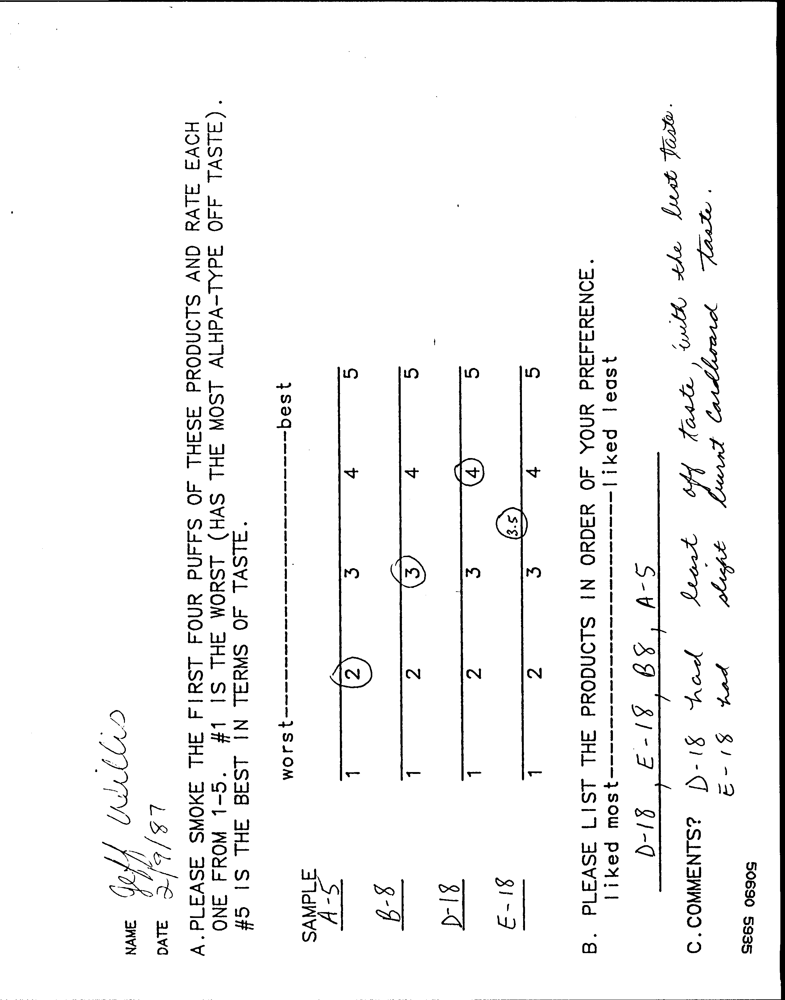 NAME Jeff Willis
DATE 2/9/87
A. PLEASE SMOKE THE FIRST FOUR PUFFS OF THESE PRODUCTS AND RATE EACH
ONE FROM 1-5. #1 IS THE WORST (HAS THE MOST ALHPA-TYPE OFF TASTE).
#5 IS THE BEST IN TERMS OF TASTE.
worst-----------------------------best
SAMPLE
A-5 1 2 3 4 5
B-8 1 2 3 4 5
D-18 1 2 3 4 5
3.5
E-18 1 2 3 4 5
B. PLEASE LIST THE PRODUCTS IN ORDER OF YOUR PREFERENCE.
liked most-----------------------------liked least
D-18, E-18, B8, A-5
C. COMMENTS? D-18 had least off taste, with the best taste.
E-18 had slight burnt cardboard taste.
50690 5935